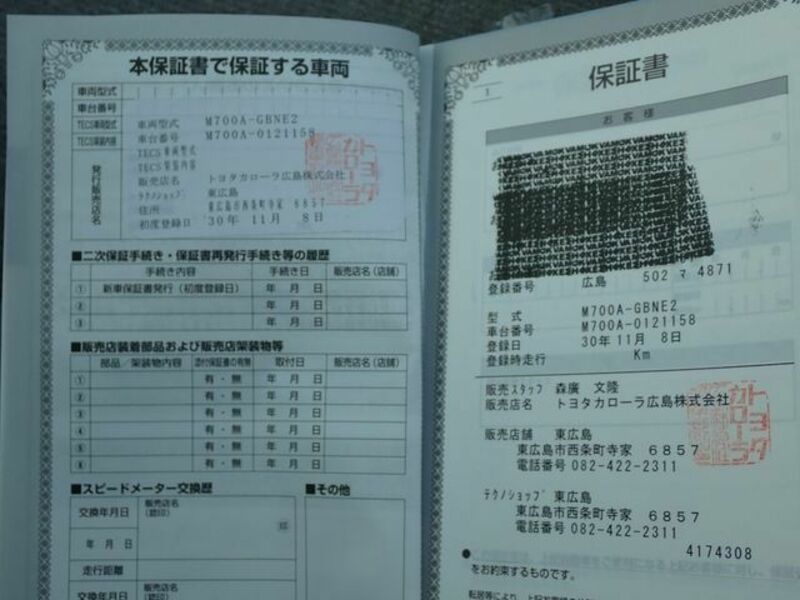 本保証書で保証する車両
車両型式
車台番号
TECS車両型式
TECS架装内容
発行販売店名
車両型式 M700A-GBNE2
車台番号 M700A-0121158
TECS車両型式
TECS架装内容
販売店名 トヨタカローラ広島株式会社
テクノショップ 東広島
住所 東広島市西条町寺家 6857
初度登録日 '30年 11月 8日
■二次保証手続き・保証書再発行手続き等の履歴
手続き内容 手続き日 販売店名(店舗)
① 新車保証書発行(初度登録日) 年 月 日
② 年 月 日
③ 年 月 日
■販売店装着部品および販売店架装物等
部品/架装物内容 添付保証書の有無 取付日 販売店名(店舗)
① 有・無 年 月 日
② 有・無 年 月 日
③ 有・無 年 月 日
④ 有・無 年 月 日
⑤ 有・無 年 月 日
⑥ 有・無 年 月 日
■スピードメーター交換歴
交換年月日 販売店名
(認印)
印
年 月 日
走行距離
交換年月日 販売店名
(認印)
■その他
1
保証書
お客様
登録番号 広島 502 マ 4871
型 式 M700A-GBNE2
車台番号 M700A-0121158
登録日 30年 11月 8日
登録時走行 Km
販売スタッフ 森廣 文隆
販売店名 トヨタカローラ広島株式会社
トヨタ
カローラ
販売店舗 東広島
東広島市西条町寺家 6857
電話番号 082-422-2311
テクノショップ 東広島
東広島市西条町寺家 6857
電話番号 082-422-2311
4174308
をお約束するものです。